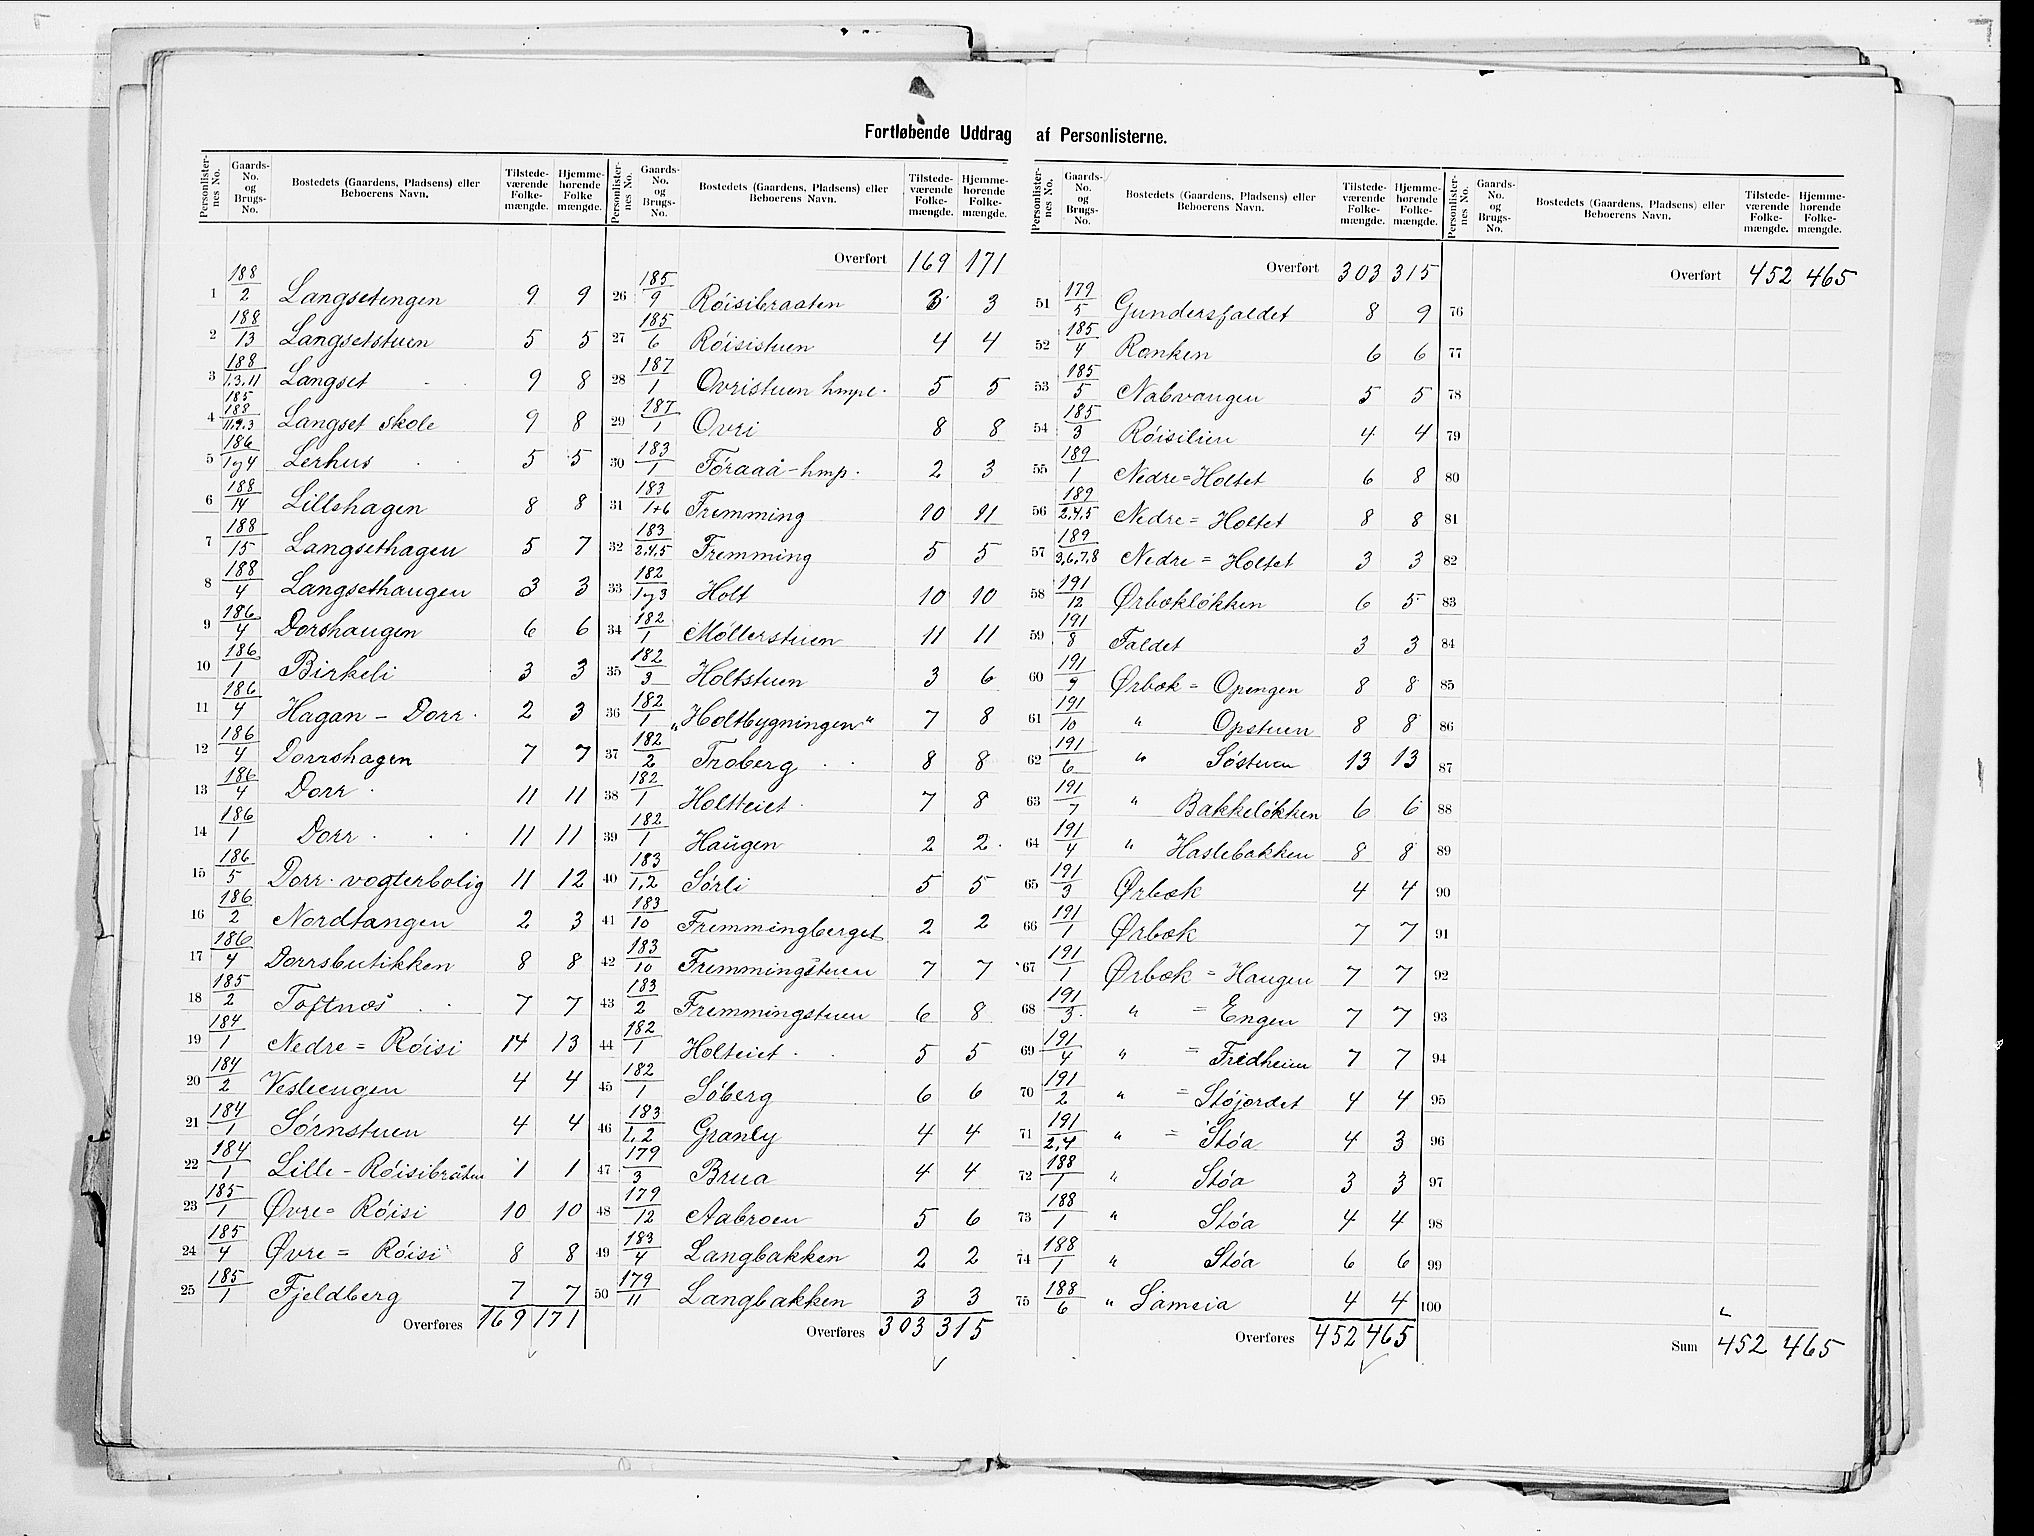 Fortløbende Uddrag af Personlisterne.
Personlister-nes No. | Gaards-No. og Brugs-No. | Bostedets (Gaardens, Pladsens) eller Beboerens Navn. | Tilstede-værende Folke-mængde. | Hjemme-hørende Folke mængde.
1 188/2 Langsetengen 9 9
2 188/13 Langsetstuen 5 5
3 188/1.3.11 Langset 9 8
4 185 188/11.9.3 Langset skole 9 8
5 186/1 og 4 Lerhus 5 5
6 188/14 Lillehagen 8 8
7 188/15 Langsethagen 5 7
8 188/4 Langsethaugen 3 3
9 186/4 Dorshaugen 6 6
10 186/1 Birkeli 3 3
11 186/4 Hagan - Dorr. 2 3
12 186/4 Dorrshagen 7 7
13 186/4 Dorr. 11 11
14 186/1 Dorr. 11 11
15 186/5 Dorr. vogterbolig 11 12
16 186/2 Nordtangen 2 3
17 186/4 Dorrsbutikken 8 8
18 185/2 Toftnes 7 7
19 184/1 Nedre = Röisi 14 13
20 184/2 Vesleengen 4 4
21 184/1 Sörnstuen 4 4
22 184/1 Lille - Röisibråten 1 1
23 185/1 Øvre = Röisi 10 10
24 185/4 Øvre = Röisi 8 8
25 185/1 Fjeldberg 7 7
Overføres 169 171
Personlister-nes No. | Gaards-No. og Brugs-No. | Bostedets (Gaardens, Pladsens) eller Beboerens Navn. | Tilstede-værende Folke-mængde. | Hjemme-hørende Folke-mængde.
Overført 169 171
26 185/9 Röisibraaten 3 3
27 185/6 Röisistuen 4 4
28 187/1 Ovristuen hmpl. 5 5
29 187/1 Ovri 8 8
30 183/1 Föraaå - hmp. 2 3
31 183/1+6 Fremming 10 11
32 183/2.4.5 Fremming 5 5
33 182/1 og 3 Holt 10 10
34 182/1 Möllerstuen 11 11
35 182/3 Holtstuen 3 6
36 182/1 "Holtbygningen" 7 8
37 182/2 Troberg 8 8
38 182/1 Holteiet 7 8
39 182/1 Haugen 2 2
40 183/1,2 Sörli 5 5
41 183/10 Fremmingberget 2 2
42 183/10 Fremmingstuen 7 7
43 183/2 Fremmingstuen 6 8
44 182/1 Holteiet 5 5
45 182/1 Söberg 6 6
46 183/1,2 Granly 4 4
47 179/3 Brua 4 4
48 179/12 Aabroen 5 6
49 183/4 Langbakken 2 2
50 179/11 Langbakken 3 3
Overføres 303 315
Personlister-nes No. | Gaards-No. og Brugs-No. | Bostedets (Gaardens, Pladsens) eller Beboerens Navn. | Tilstede-værende Folke-mængde. | Hjemme-hørende Folke-mængde.
Overført 303 315
51 179/5 Gundersfaldet 8 9
52 185/4 Ranken 6 6
53 185/5 Nabvangen 5 5
54 185/3 Röisilien 4 4
55 189/1 Nedre = Holtet 6 8
56 189/2.4.5 Nedre = Holtet 8 8
57 189/3,6,7,8 Nedre = Holtet 3 3
58 191/12 Ørbeklökken 6 5
59 191/8 Faldet 3 3
60 191/9 Ørbæk = Opengen 8 8
61 191/10 " Opstuen 8 8
62 191/6 " Söstuen 13 13
63 191/7 " Bakkelökken 6 6
64 191/4 " Haslebakken 8 8
65 191/3 Ørbæk 4 4
66 191/1 Ørbæk 7 7
67 191/1 Ørbæk = Haugen 7 7
68 191/3 " = Engen 7 7
69 191/4 " = Fredheim 7 7
70 191/2 " = Stöjordet 4 4
71 191/2,4 " = Stöa 4 3
72 188/1 " Stöa 3 3
73 188/1 " Stöa 4 4
74 188/1 " Stöa 6 6
75 188/6 " Sameia 4 4
Overføres 452 465
Personlister-nes No. | Gaards-No. og Brugs-No. | Bostedets (Gaardens, Pladsens) eller Beboerens Navn. | Tilstede-værende Folke-mængde. | Hjemme-hørende Folke-mængde.
Overført 452 465
76
77
78
79
80
81
82
83
84
85
86
87
88
89
90
91
92
93
94
95
96
97
98
99
100
Sum 452 465